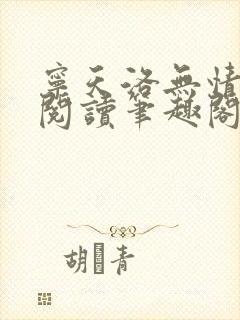 寧天洛無情
閱讀筆趣閣
胡 青